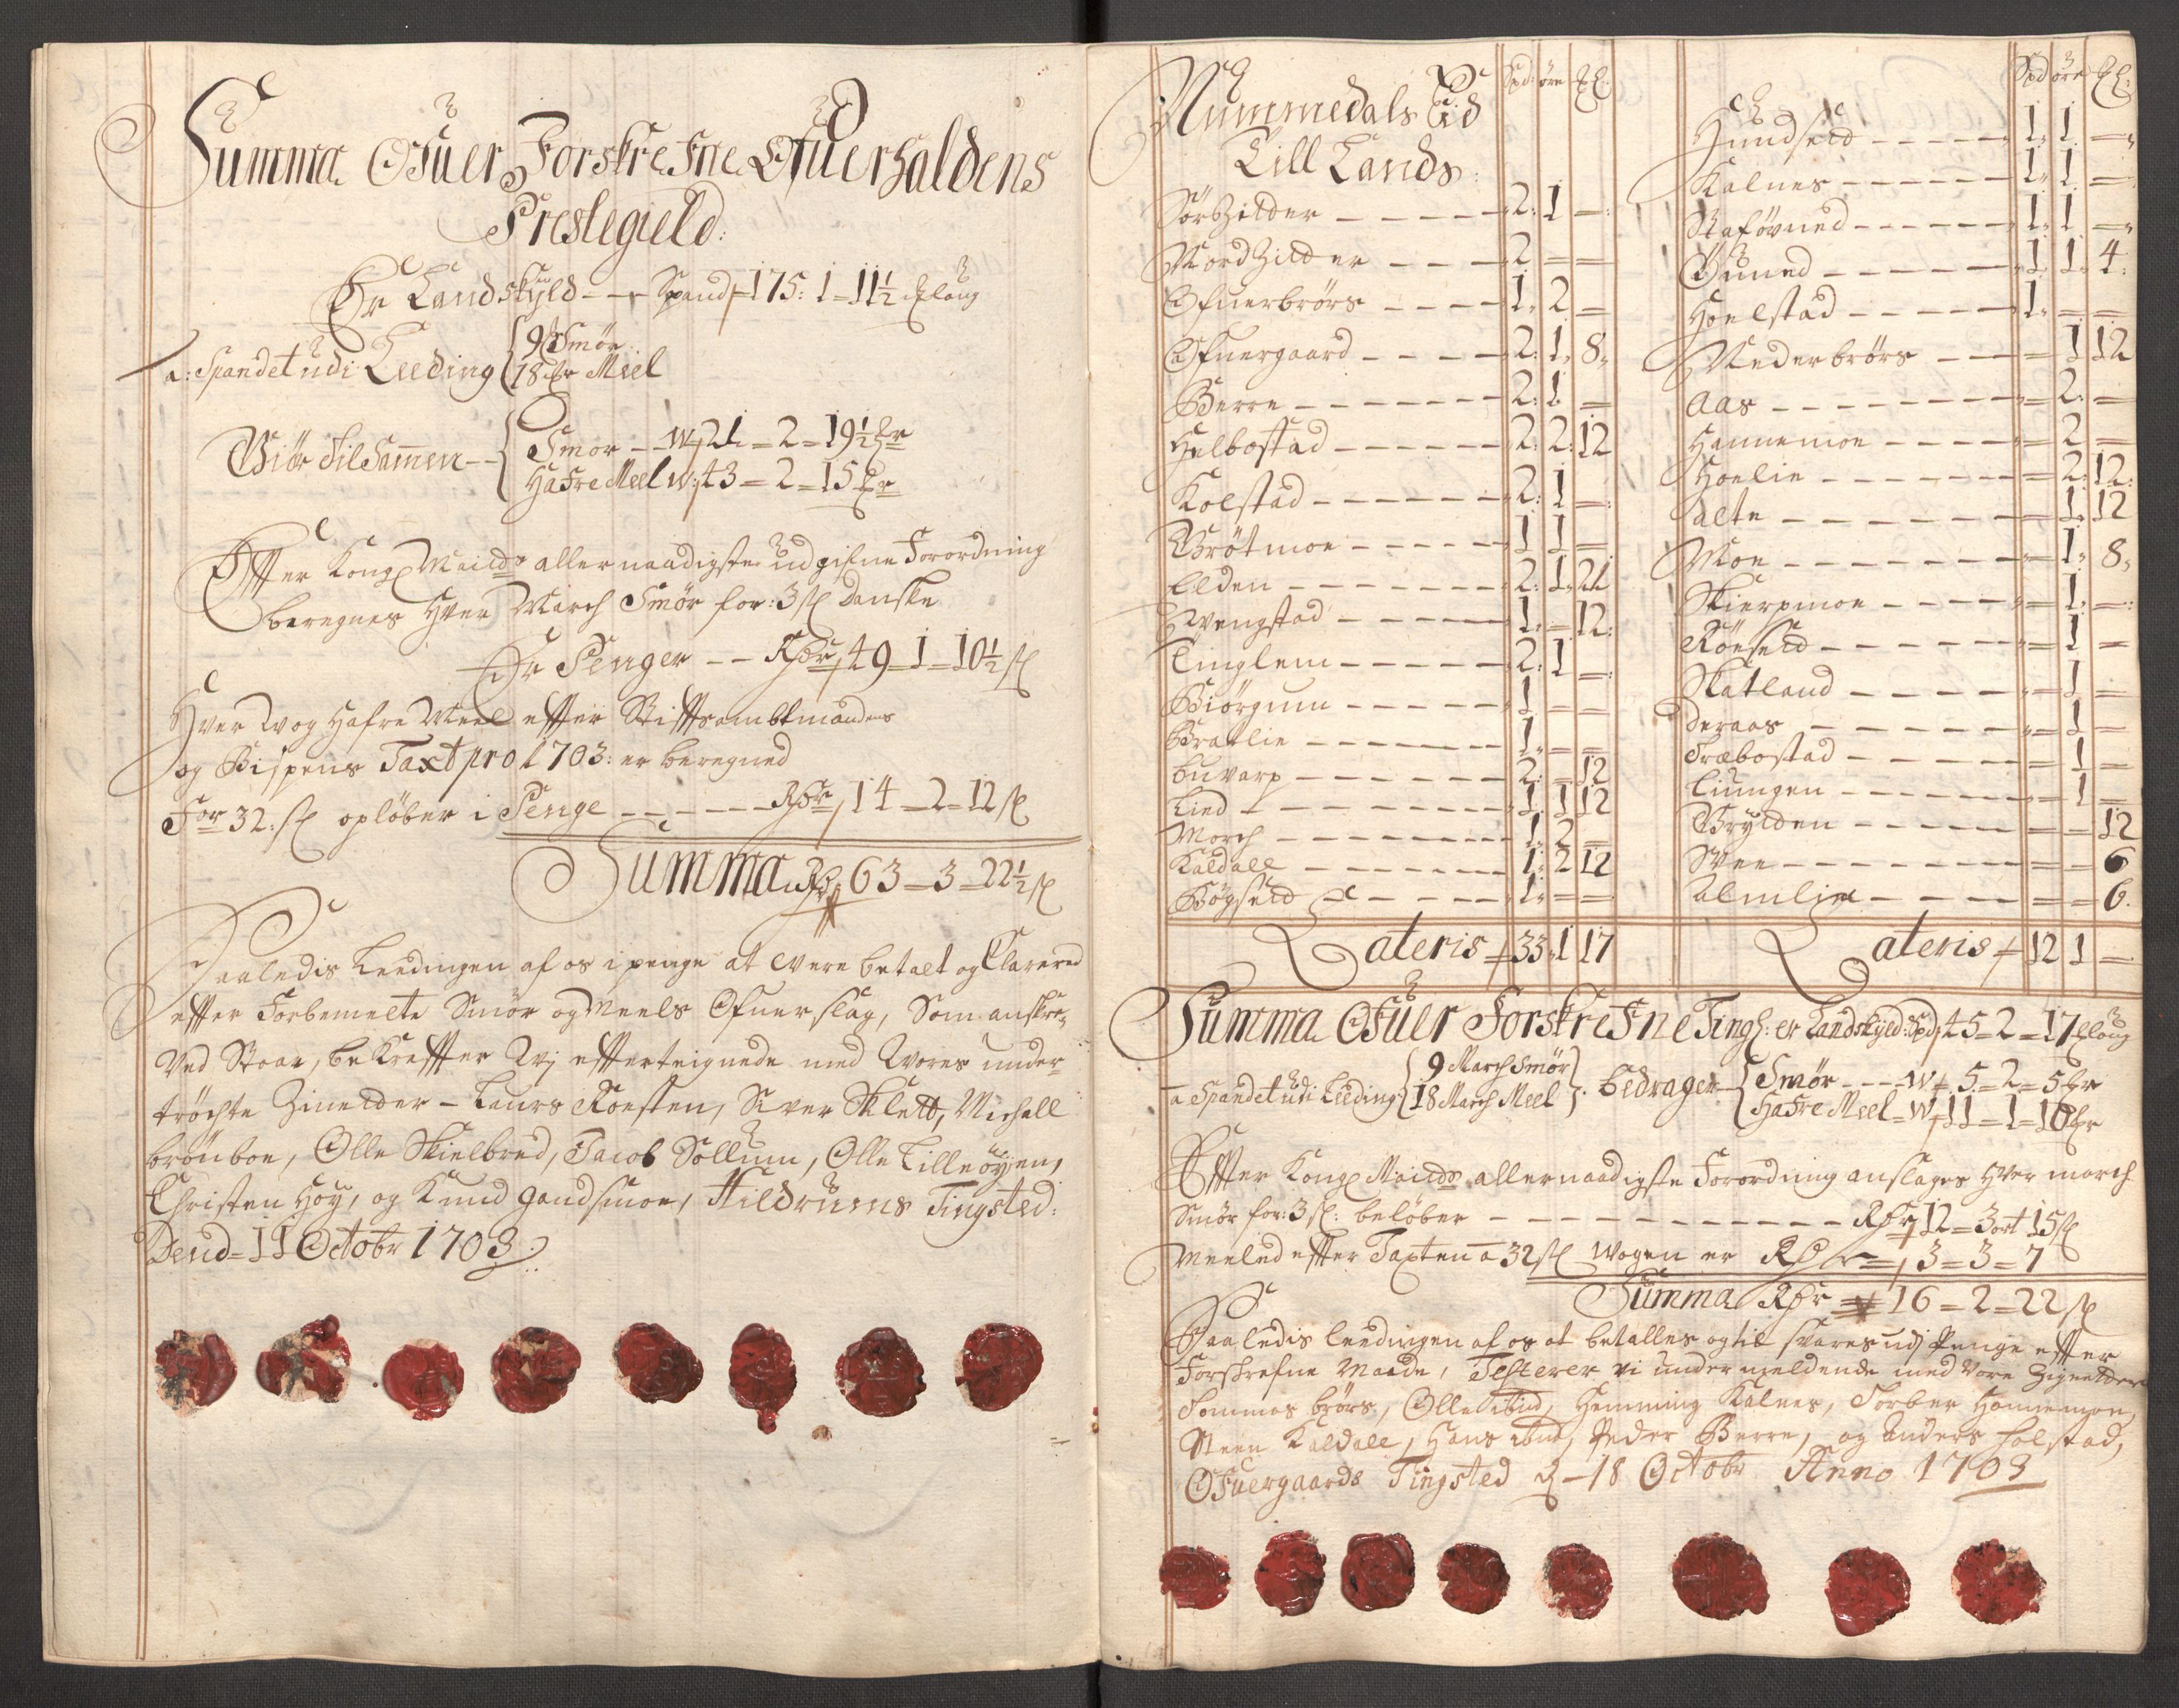 Summa Ofuer Forskrefne Ofuerhaldens
Prestegield:
Er Landskyld - - Spand 175: 1 - 11½ Eloug
a: Spandet udi Leeding { 9 Smør
18 Meel
Giør tilsamen - - { Smør - - W 21 = 2 = 19½
Hafre Meel W: 43 = 2 = 15
Effter Kong Maitds allernaadigste udgifne Forordning
beregnes Hver March Smør for: 3 danske
Er Penger - - Rdr 49 - 1 - 10½
Hver Wog Hafre Meel effter Stifftsambtmandens
og Bispens Taxt pro 1703: er beregned
For 32: opløber i Penge - - - - Rdr 14 - 2 - 12
Summa Rdr 63 - 3 - 22½
Saaledis Leedingen af os i penge at were betalt og Clarered
effter Forbemelte Smør og Meels Ofuerslag, Som anskre-
Ved Staar, bekreffter Wj effterteignede med Wores under-
tröchte Zineter - Laurs Roesten, Siver Sklett, Michell
brønboe, Olle Skielbred, Jacob Sollum, Olle Lilleøyen,
Christen Høy, og Knud Gandsmoe, Hildrums Tingsted:
Dend - 11 Octobr 1703
Nummedals Eid
Till Lands:
Spd: øre El:
Sørhilder - - - - - 2: 1 =
Nordhilder - - - 2 = =
Ofuerbrørs - - - - 1: 2 =
Ofuergaard - - - - 2: 1: 8:
Berre - - - - - - 2: 1 =
Helbostad - - - - - 2: 2: 12
Kolstad - - - - - - 2: 1 =
Brøtmoe - - - - - 1 1 =
Elden - - - - - - 2: 1: 21
Hvengstad - - - - - 1: = 12:
Tinglem - - - - - 2: 1 =
Biørgum - - - - - 1 = =
Bratlie - - - - - - 1: = =
buvarp - - - - - - 2: = 12
Lied - - - - - - - 1: 1 12
Morch - - - - - - 1: 2 =
Kaldall - - - - - - 1: 2 12
Bøgseid - - - - - 1: = =
Lateris 33: 1 17
Spd øre El:
Hundseid - - - - - 1: 1: =
Kalnes - - - - - - 1: 1: =
Stafövned - - - - - 1: 1: =
Duned - - - - - - 1: 1: 4:
Hoelstad - - - - - 1: = =
Nederbrørs - - = 1 12
Aas - - - - - - - = 2: =
Hannemoe - - - - = 2 =
Hoelie - - - - - - = 2: 12:
alte - - - - - - - = 1: 12
Moe - - - - - - - = 1: 8:
Skierpmoe - - - - = 1: =
Röeseid - - - - - = 1 =
Skatland - - - - = 1 =
deraas - - - - - - = 1 =
Træbostad - - - - = 1 =
Liungen - - - - - = 1 =
Brylden - - - - - = = 12
Svee - - - - - - - = = 6
almlie - - - - - = = 6.
Lateris 12 1 =
Summa Ofuer Forskrefne Tingl: er Landskyld: Spd: 45 = 2 = 17 Eloug
a Spandet udi Leeding { 9 March Smør
18 March Meel } bedrager { Smør - - - W 5 = 2 = 5
Hafre Meel = W 11 = 1 = 10
Effter Kong Maitds allernaadigste Forordning anslages Hver march
Smør for: 3: beløber - - - - - - - - - Rdr 12 = 3 ort 15
Meeled effter Taxten a 32 Wogen er Rdr 3 = 3 = 7
Summa Rdr 16 = 2 = 22
Saaledis Leedingen af os at betalles og til svares udj Penge effter
Forskrefne Maade, Testerer vi undermeldende med Vore Zigneter
Tommas brörs, Olle ibid, Hemming Kalnes, Torber Hannemoe,
Steen Kaldall, Hans ibid, Peder Berre, og Anders holstad,
Ofuergaards Tingsted d - 18 Octobr Anno 1703